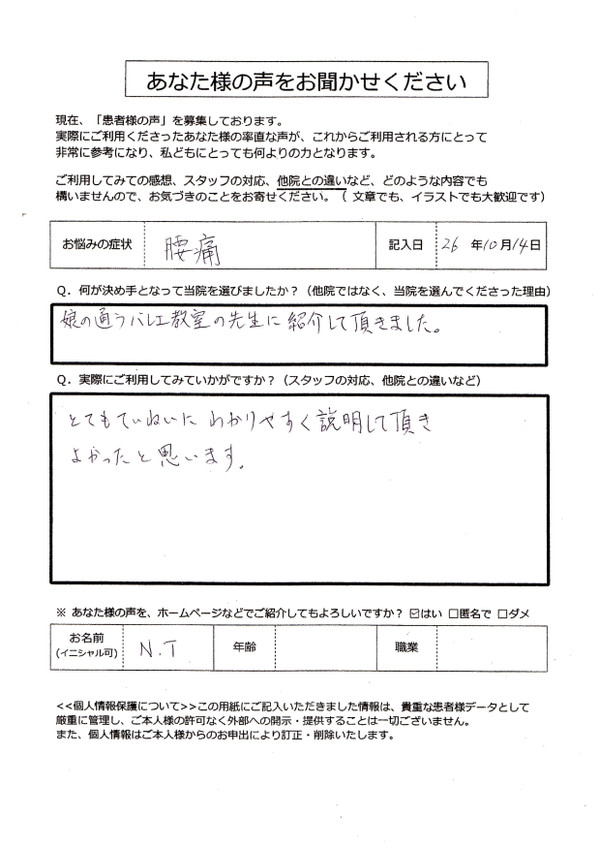 あなた様の声をお聞かせください
現在、「患者様の声」を募集しております。
実際にご利用くださったあなた様の率直な声が、これからご利用される方にとって
非常に参考になり、私どもにとっても何よりの力となります。
ご利用してみての感想、スタッフの対応、他院との違いなど、どのような内容でも
構いませんので、お気づきのことをお寄せください。（ 文章でも、イラストでも大歓迎です）
お悩みの症状 腰痛 記入日 26 年10月14日
Q．何が決め手となって当院を選びましたか？（他院ではなく、当院を選んでくださった理由）
娘の通うバレエ教室の先生に紹介して頂きました。
Q．実際にご利用してみていかがですか？（スタッフの対応、他院との違いなど）
とてもていねいにわかりやすく説明して頂き
よかったと思います。
※ あなた様の声を、ホームページなどでご紹介してもよろしいですか？ ☑はい □匿名で □ダメ
お名前 N.T 年齢 職業
(イニシャル可)
<<個人情報保護について>>この用紙にご記入いただきました情報は、貴重な患者様データとして
厳重に管理し、ご本人様の許可なく外部への開示・提供することは一切ございません。
また、個人情報はご本人様からのお申出により訂正・削除いたします。